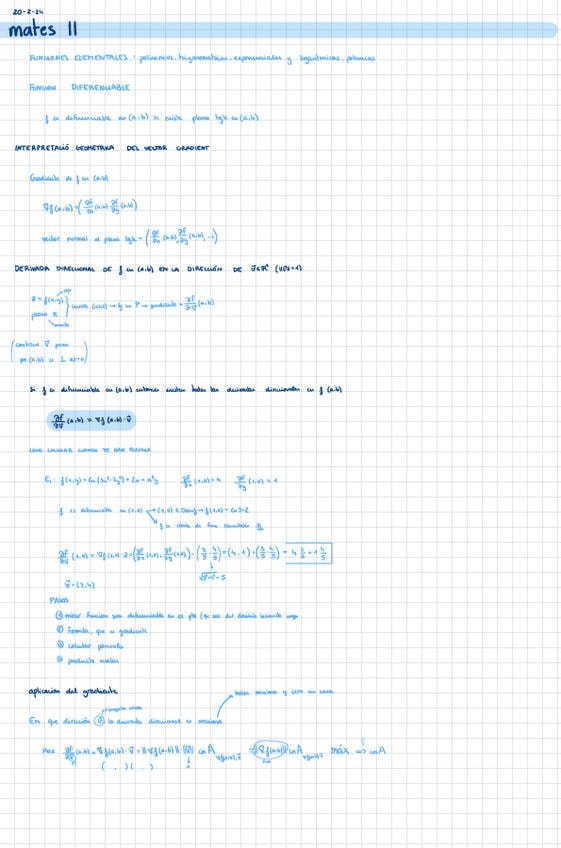 20-2-24
mates II
FUNCIONES ELEMENTALES: polinomios, trigonometricas, exponenciales y logaritmicas, potencias
FUNCION DIFERENCIABLE
f es diferenciable en (a,b) si existe plano tg k en (a,b)
INTERPRETACIÓ GEOMETRICA DEL VECTOR GRADIENT
Gradiente de f en (a,b)
∇f(a,b)=(∂f/∂x (a,b), ∂f/∂y (a,b))
vector normal al plano tg k = (∂f/∂x (a,b), ∂f/∂y (a,b), -1)
DERIVADA DIRECCIONAL DE f en (a,b) EN LA DIRECCIÓN DE v⃗∈ℝ² (||v⃗||=1)
z = f(x,y)
plano π } curva → tg en P → pendiente = ∂f/∂v⃗ (a,b)
(contiene v⃗ pasa
por (a,b) es ⊥ a z=0)
Si f es diferenciable en (a,b) entonces existen todas las derivadas direccionales en f (a,b)
∂f/∂v⃗ (a,b) = ∇f(a,b)·v⃗
COMO CALCULAR CUANDO TE DAN FORMULA
∂f/∂x (1,0)=4 ∂f/∂y (1,0)=1
f es diferenciable en (1,0) → (1,0) ∈ Dom f → f(1,0) = Ln3+2
f es comb. de func. elementales
∂f/∂v⃗ (1,0) = ∇f(1,0)·v⃗ = (∂f/∂x (1,0), ∂f/∂y (1,0))·(3/5, 4/5) = (4,1)·(3/5, 4/5) = 4 3/5 + 1 4/5
√3²+4² = 5
v⃗ = (3,4)
PASOS
① mirar funcion sea diferenciable en el pto (que sea del dominio
② formula, que es gradiente
③ calcular parciales
④ producto escalar
aplicacion del gradiente
En que dirección v⃗ la derivada direccional es maxima
Max ∂f/∂v⃗ (a,b) = ∇f(a,b)·v⃗ = ||∇f(a,b)|| ||v⃗|| cos A ∇f(a,b),v⃗ = ||∇f(a,b)|| cos A ∇f(a,b),v⃗ máx ⇒ cos A
( , )( , )